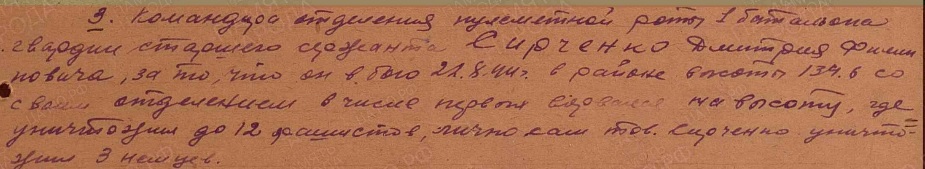 3. Командира отделения пулеметной роты 1 батальона
гвардии старшего сержанта Сирченко Дмитрия Филип
повича, за то, что он в бою 22.8.44г. в районе высоты 134.6 со
своим отделением в числе первых ворвался на высоту, где
уничтожил до 12 фашистов, лично сам тов. Сирченко уничто-
жил 3 немцев.